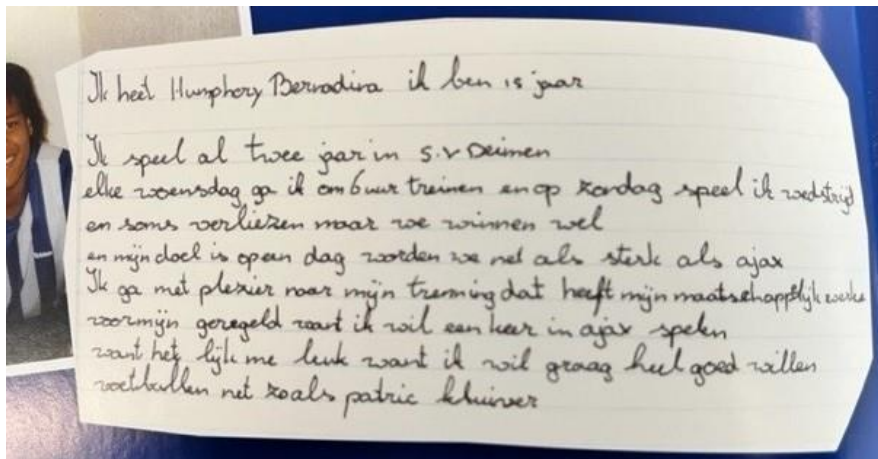 Ik heet Humphory Bernadina ik ben 15 jaar
Ik speel al twee jaar in S.V Deimen
elke woensdag ga ik om 6 uur treinen en op zondag speel ik wedstrijd
en soms verliezen maar we winnen wel
en mijn doel is opeen dag worden we net als sterk als ajax
Ik ga met plezier naar mijn trenning dat heeft mijn maatschapplijk werke
voormijn geregeld want ik wil een keer in ajax spelen
want het lijk me leuk want ik wil graag heel goed willen
voetballen net zoals patric kluiver